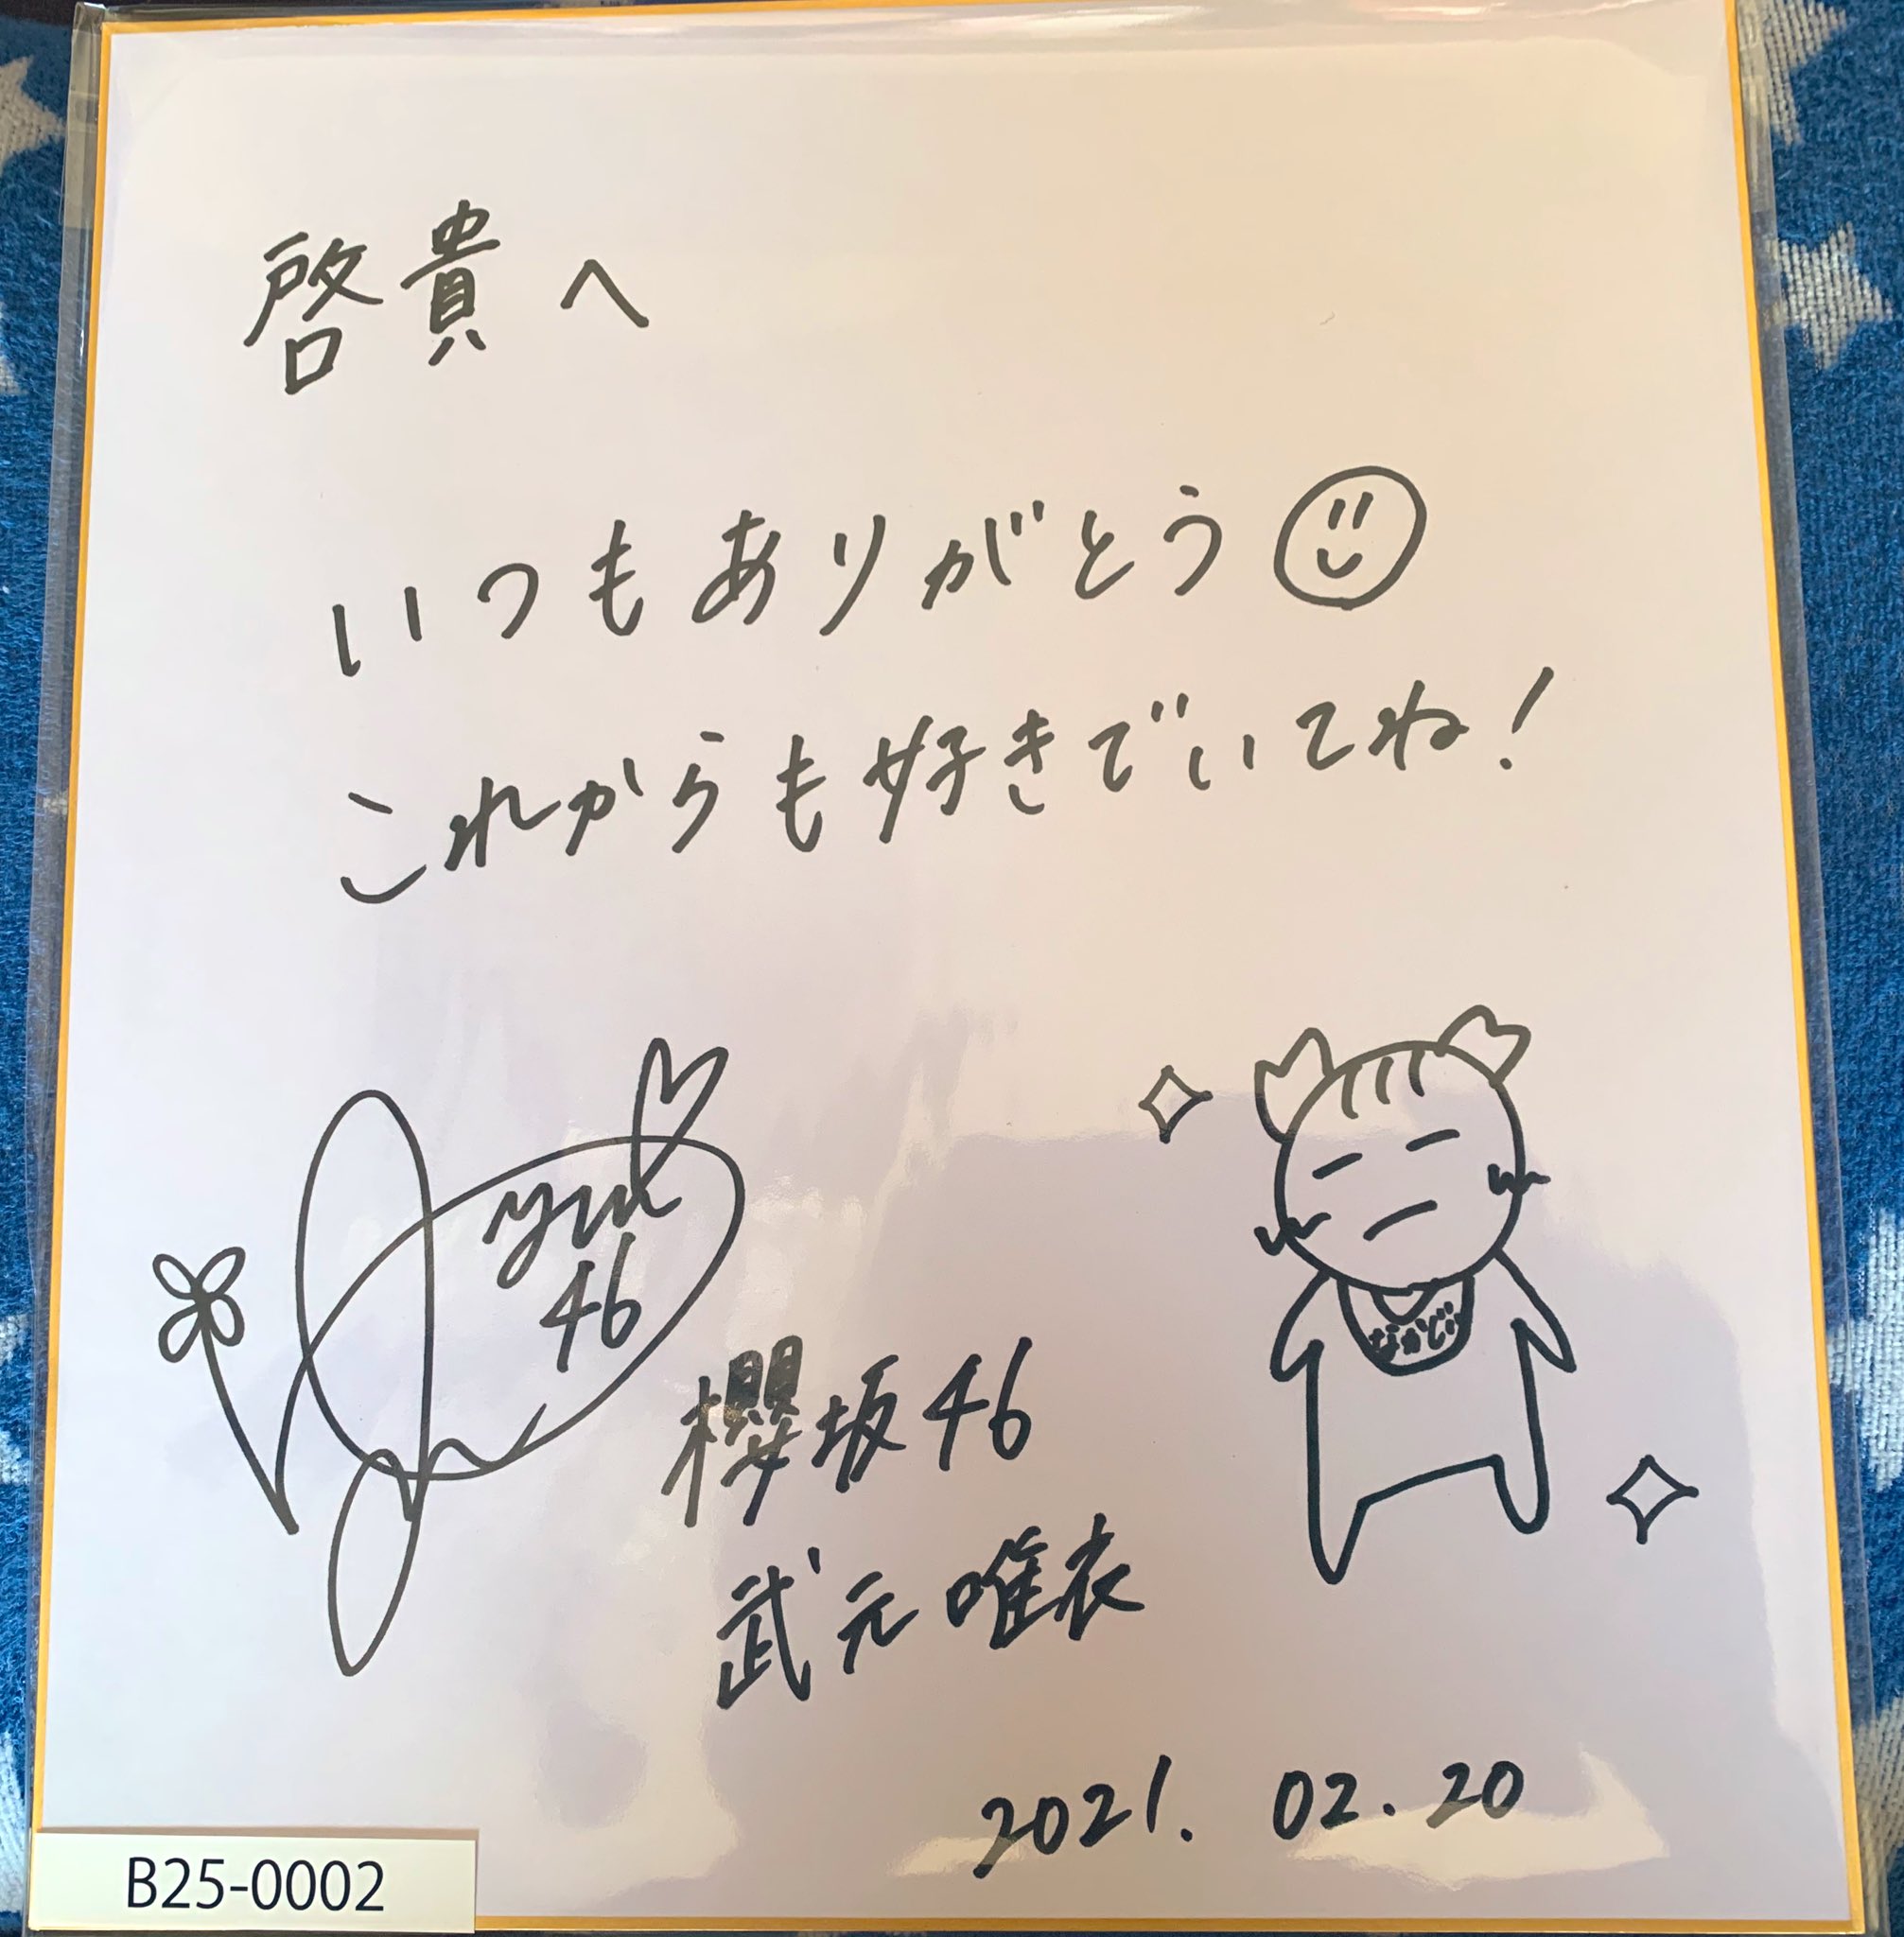 啓貴へ
いつもありがとう
これからも好きでいてね!
yui
46
櫻坂46
武元唯衣
なかじい
2021.02.20
B25-0002